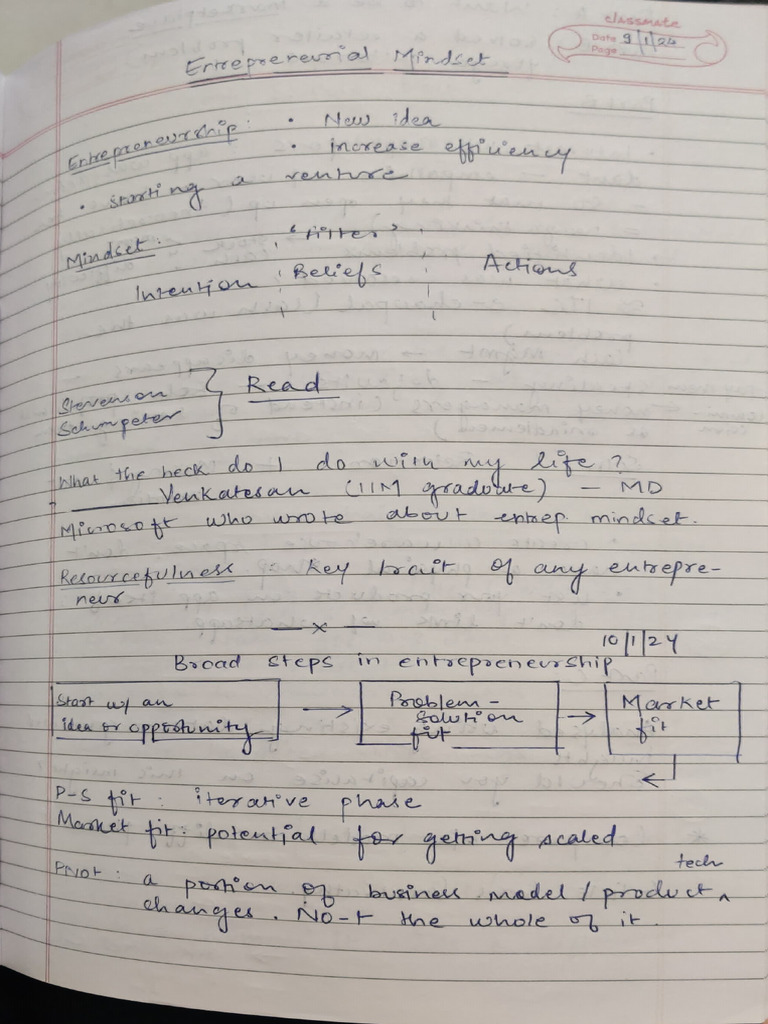 classmate
Date 9/1/24
Page
Entrepreneurial Mindset
Entrepreneurship: • New idea
• increase efficiency
• starting a venture
Mindset: 'filter'
Intention Beliefs Actions
Stevenson
Schumpeter } Read
What the heck do I do with my life?
Venkatesan (IIM graduate) - MD
Microsoft who wrote about entrep. mindset.
Resourcefulness - key trait of any entrepre-
neur
— x —
10/1/24
Broad steps in entrepreneurship
Start w/ an
idea or opportunity → Problem-
solution
fit → Market
fit
P-S fit: iterative phase
Market fit: potential for getting scaled
Pivot: a portion of business model / product ^ tech
changes. No-t the whole of it.